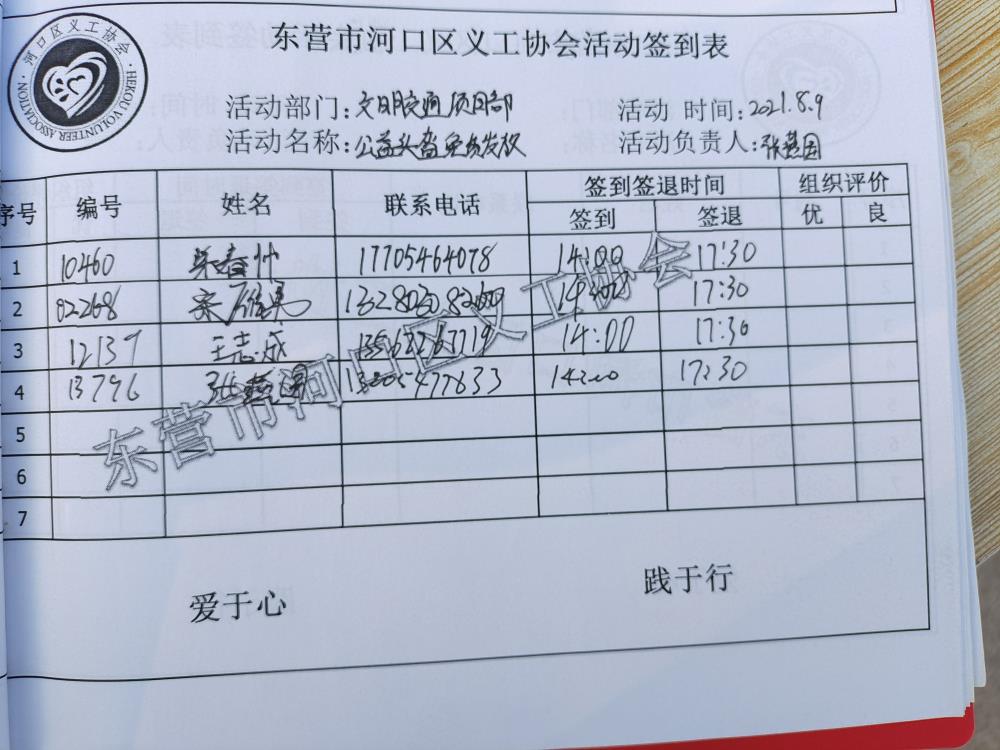 东营市河口区义工协会活动签到表
河口区义工协会
HEKOU VOLUNTEER ASSOCIATION
活动部门：文明交通项目部 活动 时间：2021.8.9
活动名称：公益头盔免费发放 活动负责人：
序号 编号 姓名 联系电话 签到签退时间 组织评价
签到 签退 优 良
1 10460 17705464078 14:00 17:30
2 02268 17:30
3 12137 王志成 14:00 17:30
4 13796 14:00 17:30
5
6
7
东营市河口区义工协会
爱于心 践于行